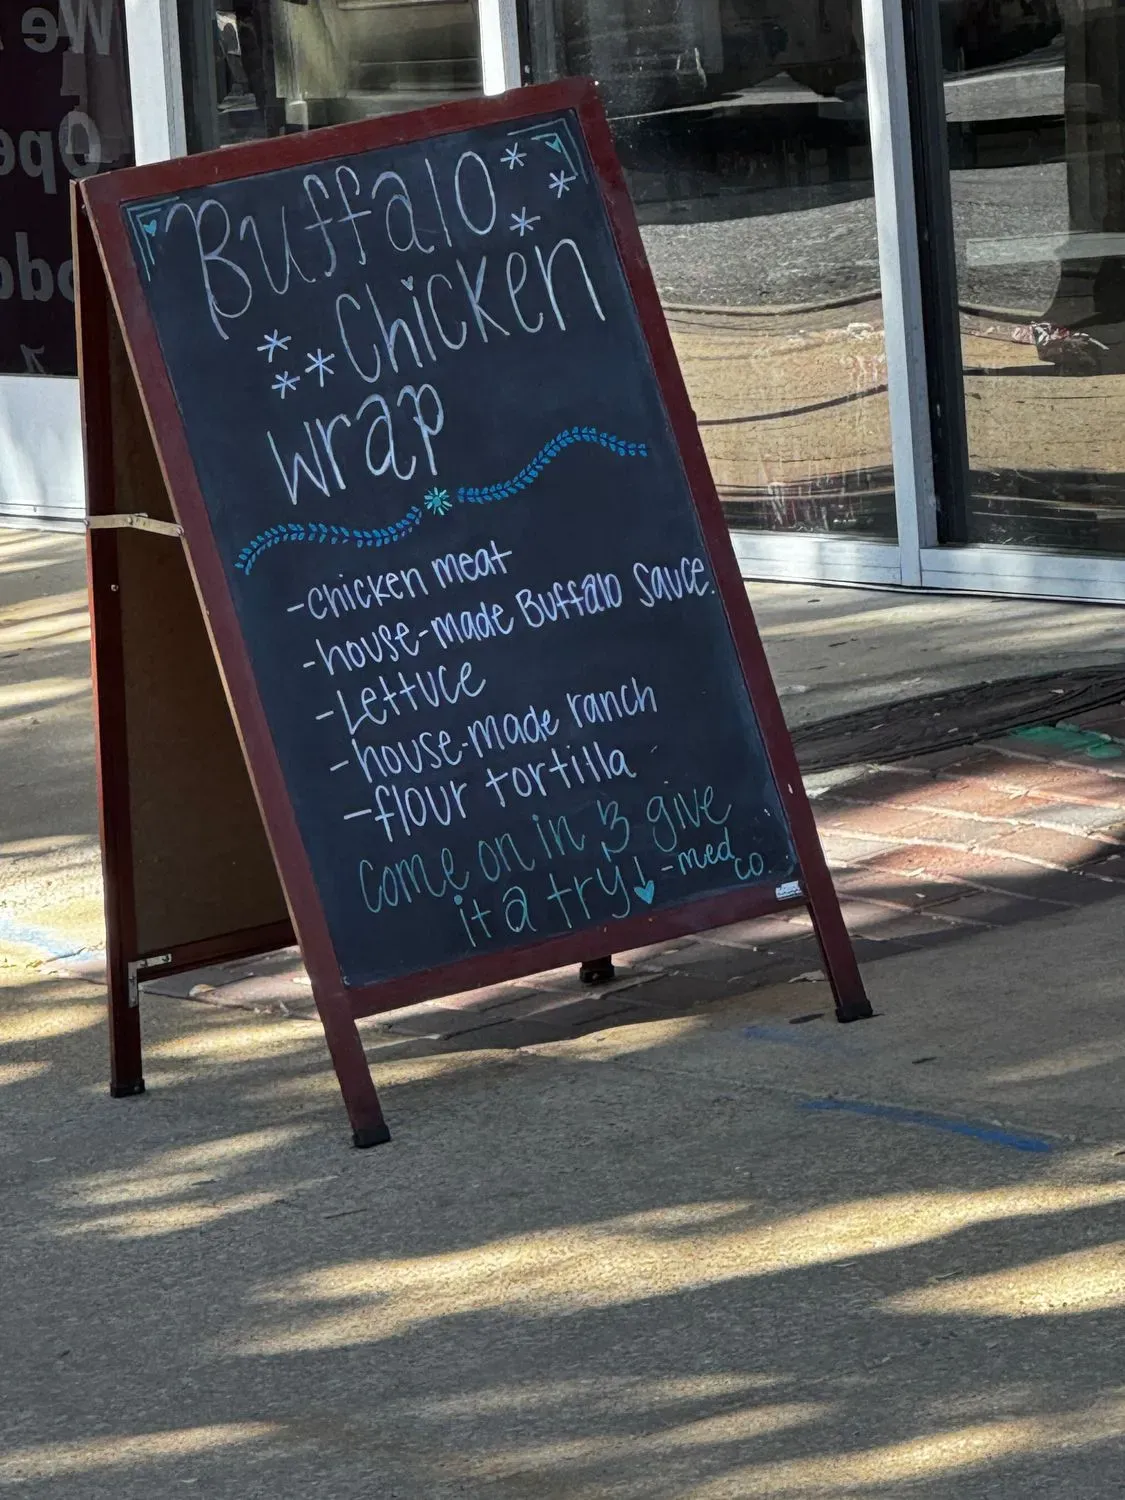 We
Ope
Buffalo
Chicken
wrap
-chicken meat
-house-made Buffalo Sauce.
-Lettuce
-house-made ranch
-flour tortilla
Come on in & give
it a try! -med
co.